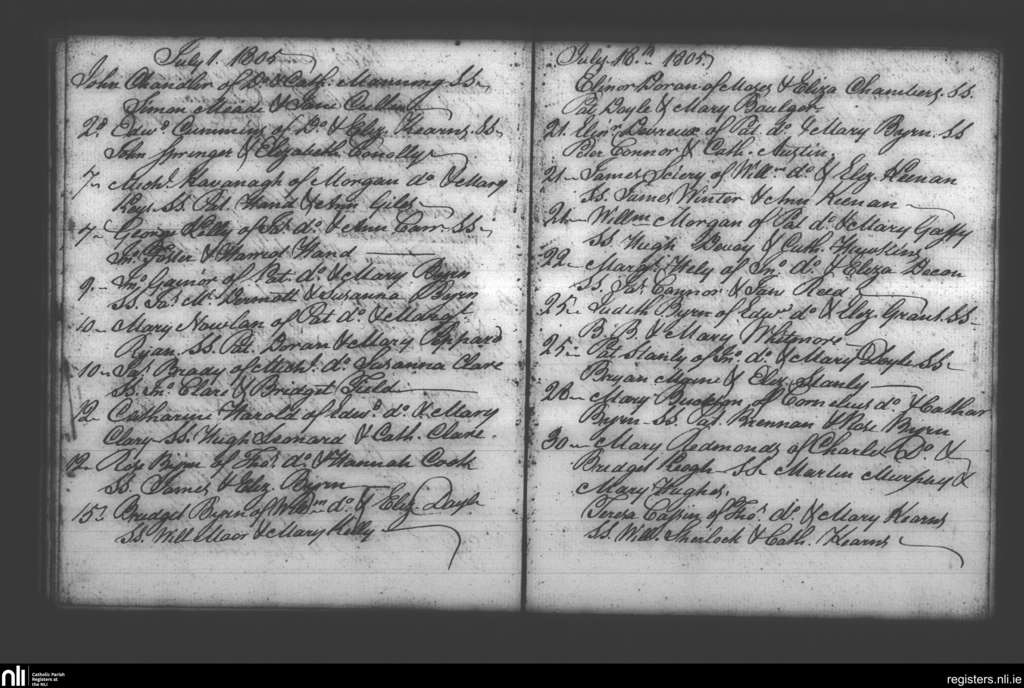 July 1. 1805
John Chandler of Do. & Cath. Manning Ss
Simon Mead & Jane Cullen
2d Edwd. Cummins of Do. & Eliz. Kearns. Ss
John Springer & Elizabeth Conolly
7 Michl. Kavanagh of Morgan do & Mary
Keys. Ss Pat. Hand & Ann Giles
7 George Kelly of Pat do. & Ann Carr Ss
Jno. Foster & Harriot Hand
9 Jno. Gaynor of Pat do. & Mary Byrn
Ss. Jas. Mc.Dermott & Susanna Byrn
10 Mary Nowlan of Pat do. &
Ryan. Ss. Pat. Doran & Mary Peppard
10 Jas. Brady of Michl. do. Susanna Clare
Ss. Jno. Clare & Bridget Field
12 Catharine Harold of Edwd. do. & Mary
Clary Ss. Hugh Leonard & Cath. Clare.
12 Rose Byrn of Thos. do. & Hannah Cook
Ss. James & Eliz. Byrn
15 Bridget Byrn of Willm do. & Eliz. Doyle
Ss. Will Moor & Mary Kelly
July 18.th 1805
Elinor Doran of Moses & Eliza Chambers. Ss.
Pat Doyle & Mary Baulger
21. Devreux of Pat. do. & Mary Byrn. Ss
Peter Connor & Cath. Austin
21 James of Willm do. & Eliz. Keenan
Ss. James Winter & Ann Keenan
21 Willm Morgan of Pat do. & Mary Gaffy
Ss. Hugh Devoy & Cath. Hawkins
22 Margt. Hely of Jno. do. & Eliza Deacon
Ss. Jas. Connor & Jane Reed
25 Judith Byrn of Edwd do. & Eliz. Grant. Ss
B. B. & Mary Whitmore
25 Pat Stanly of Jno. do. & Mary Doyle Ss
Bryan Moore & Eliz. Stanly
28 Mary of Cornelius do. & Cathar
Byrn Ss. Pat. Brennan & Rose Byrn
30 Mary Redmonds of Charles Do. &
Bridget Keogh Ss Martin Murphy &
Mary Hughes.
Teresa Cassin of Thos. do. & Mary Kearns
Ss. Will. Sherlock & Cath. Kearns
nli
Catholic Parish
Registers at
the NLI
registers.nli.ie